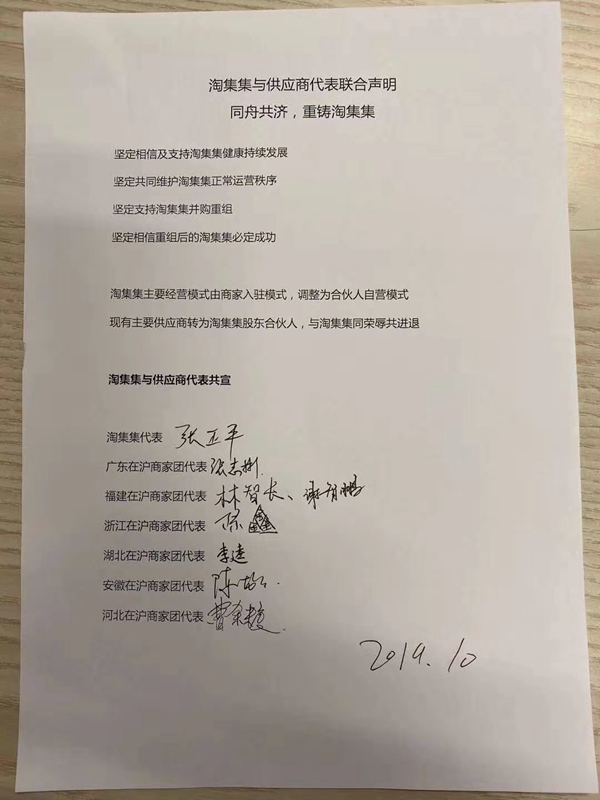 淘集集与供应商代表联合声明
同舟共济，重铸淘集集
坚定相信及支持淘集集健康持续发展
坚定共同维护淘集集正常运营秩序
坚定支持淘集集并购重组
坚定相信重组后的淘集集必定成功
淘集集主要经营模式由商家入驻模式，调整为合伙人自营模式
现有主要供应商转为淘集集股东合伙人，与淘集集同荣辱共进退
淘集集与供应商代表共宣
淘集集代表 张正平
广东在沪商家团代表
福建在沪商家团代表 林智长、
浙江在沪商家团代表 陈鑫
湖北在沪商家团代表
安徽在沪商家团代表 陈
河北在沪商家团代表
2019.10